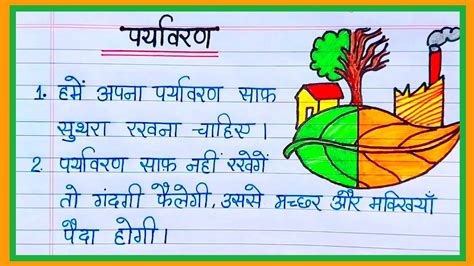 पर्यावरण
1. हमें अपना पर्यावरण साफ़
सुथरा रखना चाहिए।
2. पर्यावरण साफ़ नहीं रखेगें
तो गंदगी फैलेगी, उससे मच्छर और मक्खियाँ
पैदा होगी।